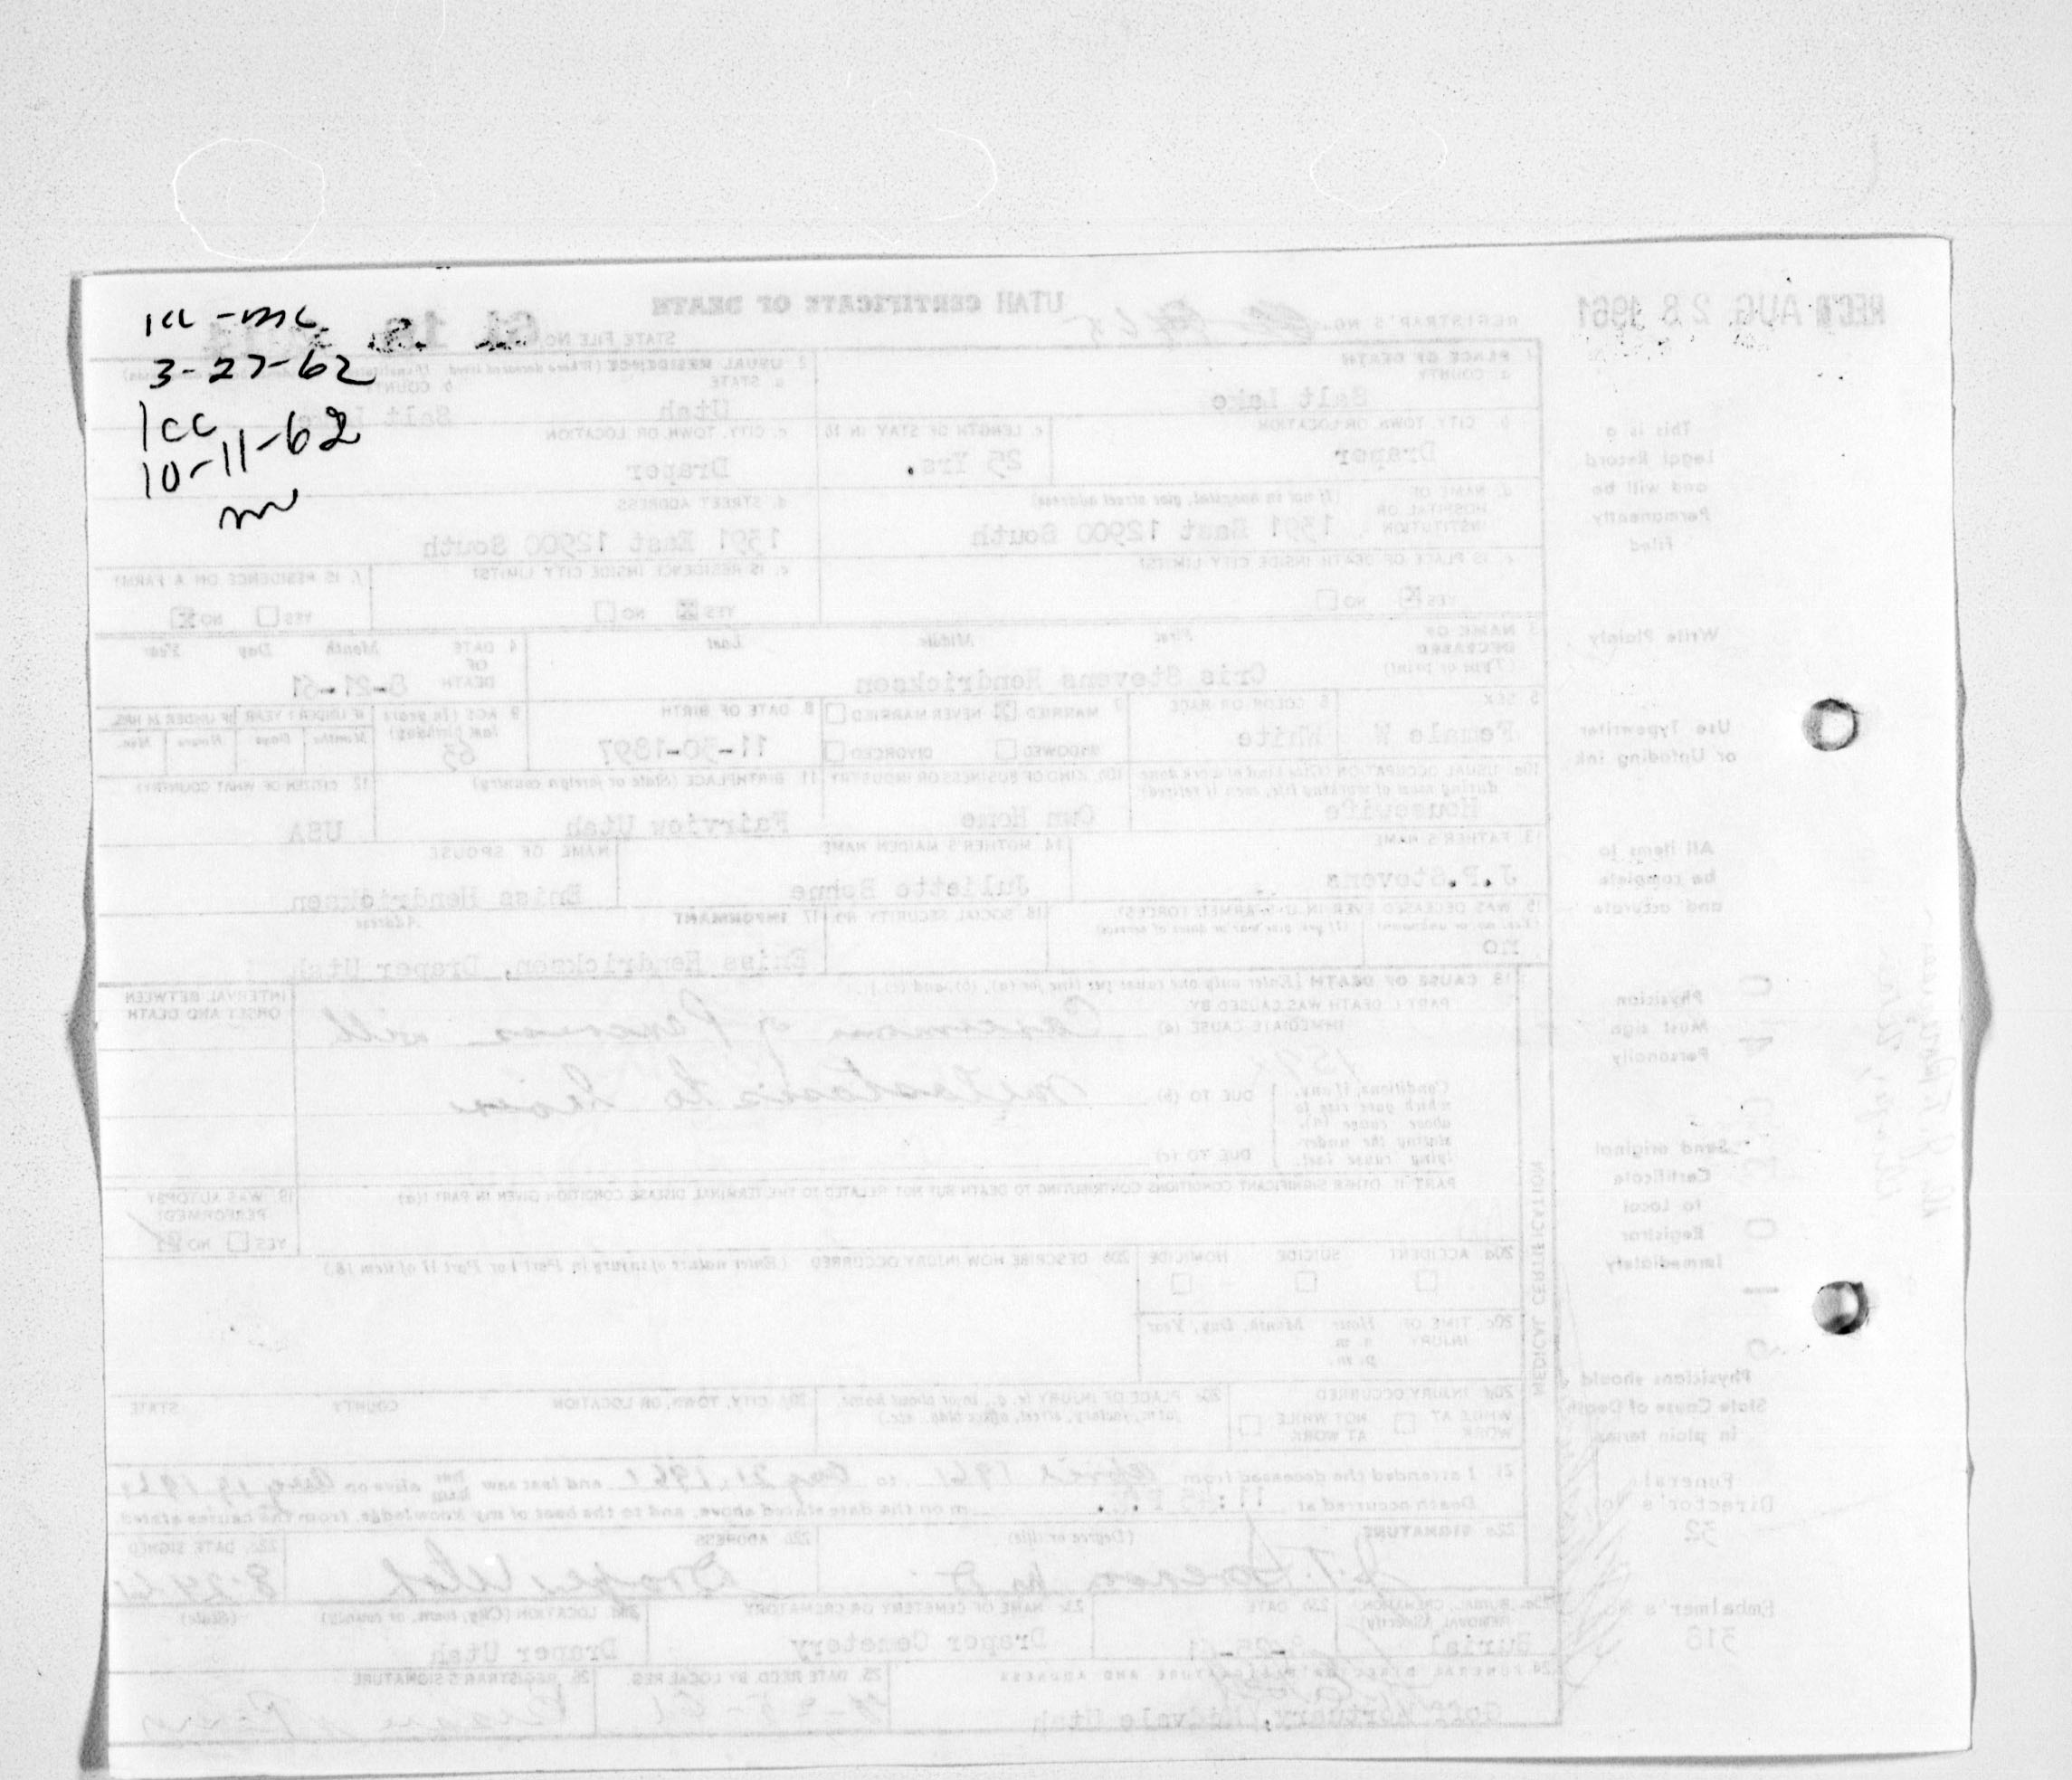 1cc - mc
3-27-62
1cc
10-11-62
m
REC'D AUG 28 1961
UTAH CERTIFICATE OF DEATH
REGISTRAR'S NO.
STATE FILE NO. 61 18
1. PLACE OF DEATH
a. COUNTY
Salt Lake
2. USUAL RESIDENCE (Where deceased lived.
a. STATE
Utah
b. COUNTY
Salt Lake
b. CITY, TOWN, OR LOCATION
Draper
c. LENGTH OF STAY IN 1b
25 Yrs.
c. CITY, TOWN, OR LOCATION
Draper
d. NAME OF HOSPITAL OR INSTITUTION
(If not in hospital, give street address)
1391 East 12900 South
d. STREET ADDRESS
1391 East 12900 South
e. IS PLACE OF DEATH INSIDE CITY LIMITS?
YES X NO
e. IS RESIDENCE INSIDE CITY LIMITS?
YES X NO
f. IS RESIDENCE ON A FARM?
YES NO X
3. NAME OF DECEASED
(Type or print)
First Middle Last
Cris Stevens Hendrickson
4. DATE OF DEATH
Month Day Year
8-21-61
5. SEX
Female
6. COLOR OR RACE
White
7. MARRIED X NEVER MARRIED
WIDOWED DIVORCED
8. DATE OF BIRTH
11-30-1897
9. AGE (In years last birthday)
63
IF UNDER 1 YEAR
Months Days
IF UNDER 24 HRS.
Hours Min.
10a. USUAL OCCUPATION (Give kind of work done during most of working life, even if retired)
Housewife
10b. KIND OF BUSINESS OR INDUSTRY
Own Home
11. BIRTHPLACE (State or foreign country)
Fairview Utah
12. CITIZEN OF WHAT COUNTRY?
USA
13. FATHER'S NAME
J.P.Stevens
14. MOTHER'S MAIDEN NAME
Juliette
NAME OF SPOUSE
Eniss Hendrickson
15. WAS DECEASED EVER IN U.S. ARMED FORCES?
(Yes, no, or unknown) (If yes, give war or dates of service)
no
16. SOCIAL SECURITY NO.
17. INFORMANT
Address
Eniss Hendrickson, Draper Utah
18. CAUSE OF DEATH [Enter only one cause per line for (a), (b), and (c).]
PART I. DEATH WAS CAUSED BY:
IMMEDIATE CAUSE (a)
Carcinoma of Pancreas with
INTERVAL BETWEEN ONSET AND DEATH
Conditions, if any, which gave rise to above cause (a), stating the underlying cause last.
DUE TO (b)
metastasis to Liver
DUE TO (c)
PART II. OTHER SIGNIFICANT CONDITIONS CONTRIBUTING TO DEATH BUT NOT RELATED TO THE TERMINAL DISEASE CONDITION GIVEN IN PART I(a)
19. WAS AUTOPSY PERFORMED?
YES NO X
20a. ACCIDENT SUICIDE HOMICIDE
20b. DESCRIBE HOW INJURY OCCURRED (Enter nature of injury in Part I or Part II of item 18.)
20c. TIME OF INJURY
Hour Month, Day, Year
a. m.
p. m.
20d. INJURY OCCURRED
WHILE AT WORK NOT WHILE AT WORK
20e. PLACE OF INJURY (e. g., in or about home, farm, factory, street, office bldg., etc.)
20f. CITY, TOWN, OR LOCATION COUNTY STATE
21. I attended the deceased from April 1961 to Aug 21, 1961 and last saw her him alive on Aug 19 1961
Death occurred at 11:45 P. m on the date stated above, and to the best of my knowledge, from the causes stated
22a. SIGNATURE (Degree or title)
22b. ADDRESS
Draper Utah
22c. DATE SIGNED
8-24-61
23a. BURIAL, CREMATION, REMOVAL (Specify)
Burial
23b. DATE
8-25-61
23c. NAME OF CEMETERY OR CREMATORY
Draper Cemetery
23d. LOCATION (City, town, or county) (State)
Draper Utah
24. FUNERAL DIRECTOR'S SIGNATURE AND ADDRESS
Goff Mortuary, Midvale Utah
25. DATE RECD. BY LOCAL REG.
26. REGISTRAR'S SIGNATURE
MEDICAL CERTIFICATION
This is a Legal Record and will be Permanently Filed
Write Plainly
Use Typewriter or Unfading ink
All items to be complete and accurate
Physician Must sign Personally
Send original Certificate to Local Registrar Immediately
Physicians should State Cause of Death in plain terms
Funeral Director's No.
32
Embalmer's No.
318